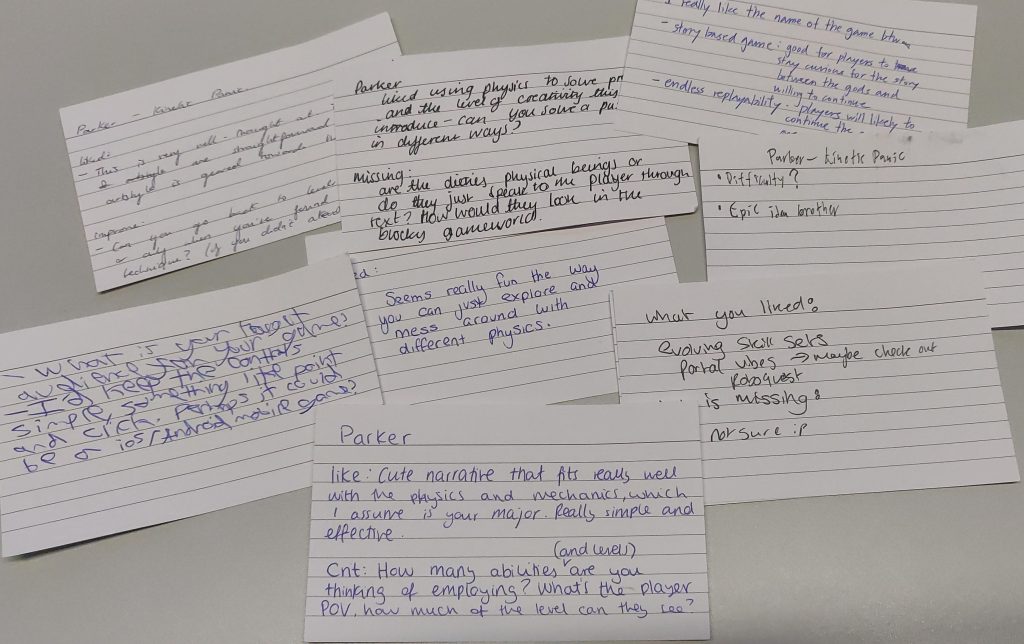 Parker - Kinetic Panic
liked:
- This is very well-thought at
& artstyle are straightforward
artstyle is geared toward
improve:
- Can you go back to levels
or only when you've found
technique? (if you didn't
Parker
liked using physics to solve
and the level of creativity this
introduce - can you solve a
in different ways?
missing:
are the dieties physical beings or
do they just speak to the player through
text? How would they look in the
blocky gameworld.
really like the name of the game btw
- story based game: good for players to
stay curious for the story
between the gods and
willing to continue
- endless replayability - players will likely to
continue the
Parker - kinetic Panic
• Difficulty?
• Epic idea brother
Seems really fun the way
you can just explore and
mess around with
different physics.
- What is your target
audience for your game?
- I'd keep the controls
simple, something like point
and click. Perhaps it could
be a iOS/Android mobile game?
what you liked:
evolving skill sets
Portal vibes → maybe check out
Roboquest
is missing:
not sure :p
Parker
like: Cute narrative that fits really well
with the physics and mechanics, which
I assume is your major. Really simple and
effective.
(and levels)
Cnt: How many abilities are you
thinking of employing? What's the player
POV, how much of the level can they see?